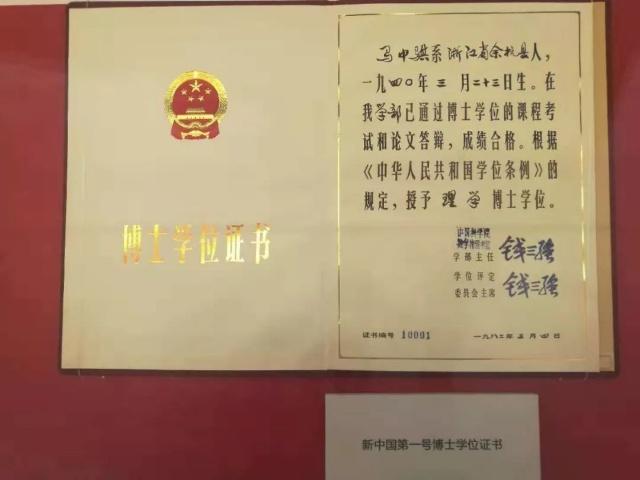 博士学位证书
马中骐系浙江省余杭县人，
一九四〇年三月二十三日生。在
我学部已通过博士学位的课程考
试和论文答辩，成绩合格。根据
《中华人民共和国学位条例》的
规定，授予理学博士学位。
中国科学院
数学物理学
学部主任 钱三强
学位评定
委员会主席 钱三强
证书编号 10001 一九八二年五月四日
新中国第一号博士学位证书